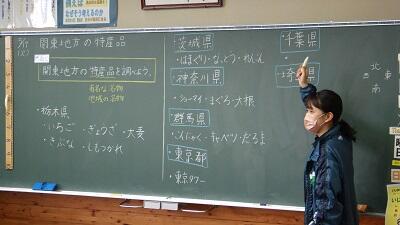 関東地方の特産品
関東地方の特産品を調べよう。
有名な名物
地域の名物
・栃木県
いちご ・ぎょうざ ・大麦
・きぶな ・しもつかれ
茨城県
・はまぐり・なっとう・れんこん
神奈川県
・シューマイ・まぐろ・大根
群馬県
・こんにゃく・キャベツ・だるま
東京都
・東京タワー
千葉県
埼玉県
北
東
南